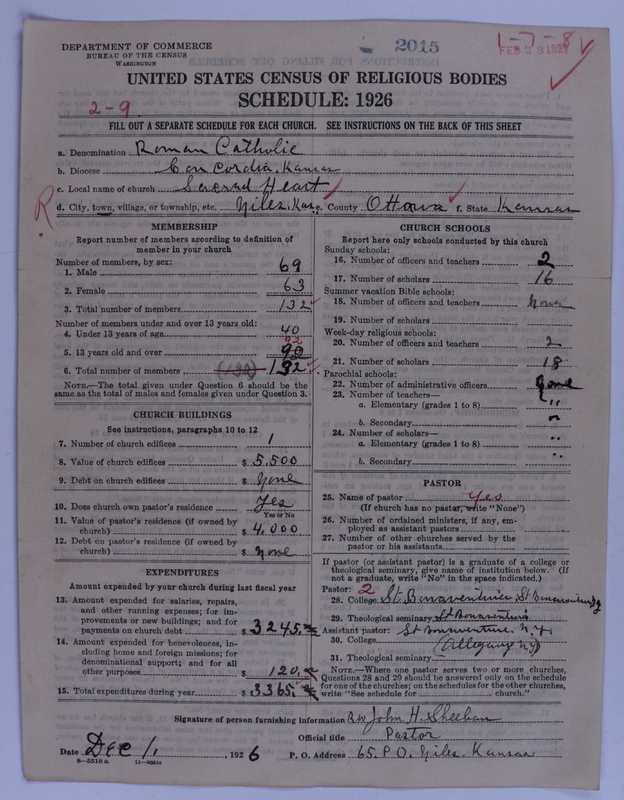 DEPARTMENT OF COMMERCE
BUREAU OF THE CENSUS
WASHINGTON
2015
1-7-8
FEB 23 1927
UNITED STATES CENSUS OF RELIGIOUS BODIES
SCHEDULE: 1926
2-9
FILL OUT A SEPARATE SCHEDULE FOR EACH CHURCH. SEE INSTRUCTIONS ON THE BACK OF THIS SHEET
a. Denomination Roman Catholic
b. Diocese Concordia, Kansas
c. Local name of church Sacred Heart
R
d. City, town, village, or township, etc. Niles, Kans. e. County Ottawa f. State Kansas
MEMBERSHIP
Report number of members according to definition of
member in your church
Number of members, by sex:
1. Male 69
2. Female 63
3. Total number of members 132
Number of members under and over 13 years old:
4. Under 13 years of age 40
92
5. 13 years old and over 90
6. Total number of members (130) 132
NOTE.—The total given under Question 6 should be
same as the total of males and females given under Question 3.
CHURCH BUILDINGS
See instructions, paragraphs 10 to 12
7. Number of church edifices 1
8. Value of church edifices $ 5,500
9. Debt on church edifices $ None
10. Does church own pastor's residence Yes
Yes or No
11. Value of pastor's residence (if owned by
church) $ 4,000
12. Debt on pastor's residence (if owned by
church) $ None
EXPENDITURES
Amount expended by your church during last fiscal year
13. Amount expended for salaries, repairs,
and other running expenses; for im-
provements or new buildings; and for
payments on church debt $ 3245.
14. Amount expended for benevolences, in-
cluding home and foreign missions; for
denominational support; and for all
other purposes $ 120.
15. Total expenditures during year $ 3365.
CHURCH SCHOOLS
Report here only schools conducted by this church
Sunday schools:
16. Number of officers and teachers 2
17. Number of scholars 16
Summer vacation Bible schools:
18. Number of officers and teachers None
19. Number of scholars
Week-day religious schools:
20. Number of officers and teachers 2
21. Number of scholars 18
Parochial schools:
22. Number of administrative officers None
23. Number of teachers—
a. Elementary (grades 1 to 8) "
b. Secondary "
24. Number of scholars—
a. Elementary (grades 1 to 8) "
b. Secondary "
PASTOR
25. Name of pastor Yes
(If church has no pastor, write "None")
26. Number of ordained ministers, if any, em-
ployed as assistant pastors
27. Number of other churches served by the
pastor or his assistants
If pastor (or assistant pastor) is a graduate of a college or
theological seminary, give name of institution below. (If
not a graduate, write "No" in the space indicated.)
Pastor: 2
28. College St Bonaventure, St Bonaventure N.Y
29. Theological seminary St Bonaventure
Assistant pastor: St Bonaventure N.Y.
30. College (Allegany N.Y)
31. Theological seminary
NOTE.—Where one pastor serves two or more churches,
Questions 28 and 29 should be answered only on the schedule
for one of the churches; on the schedules for the other churches,
write "See schedule for church."
Signature of person furnishing information Rev John H. Sheehan
Official title Pastor
Date Dec 1, 1926 P. O. Address 65. P.O. Niles. Kansas
8—5518 a